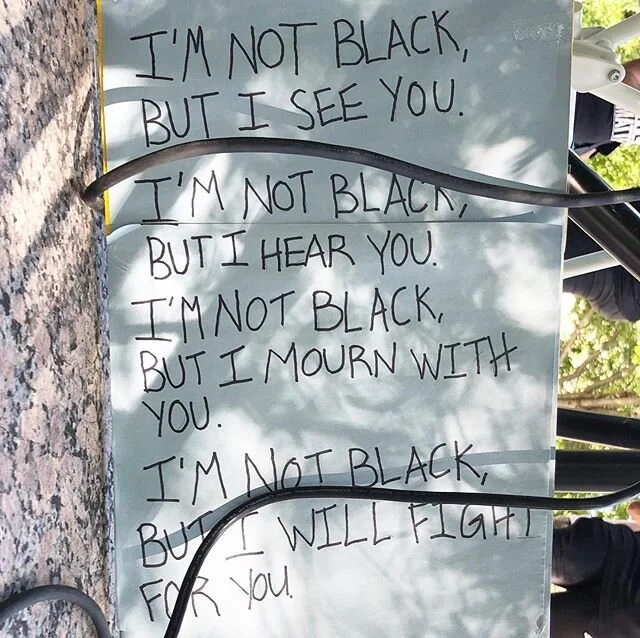 I'M NOT BLACK,
BUT I SEE YOU.
I'M NOT BLACK,
BUT I HEAR YOU.
I'M NOT BLACK,
BUT I MOURN WITH
YOU.
I'M NOT BLACK,
BUT I WILL FIGHT
FOR YOU.